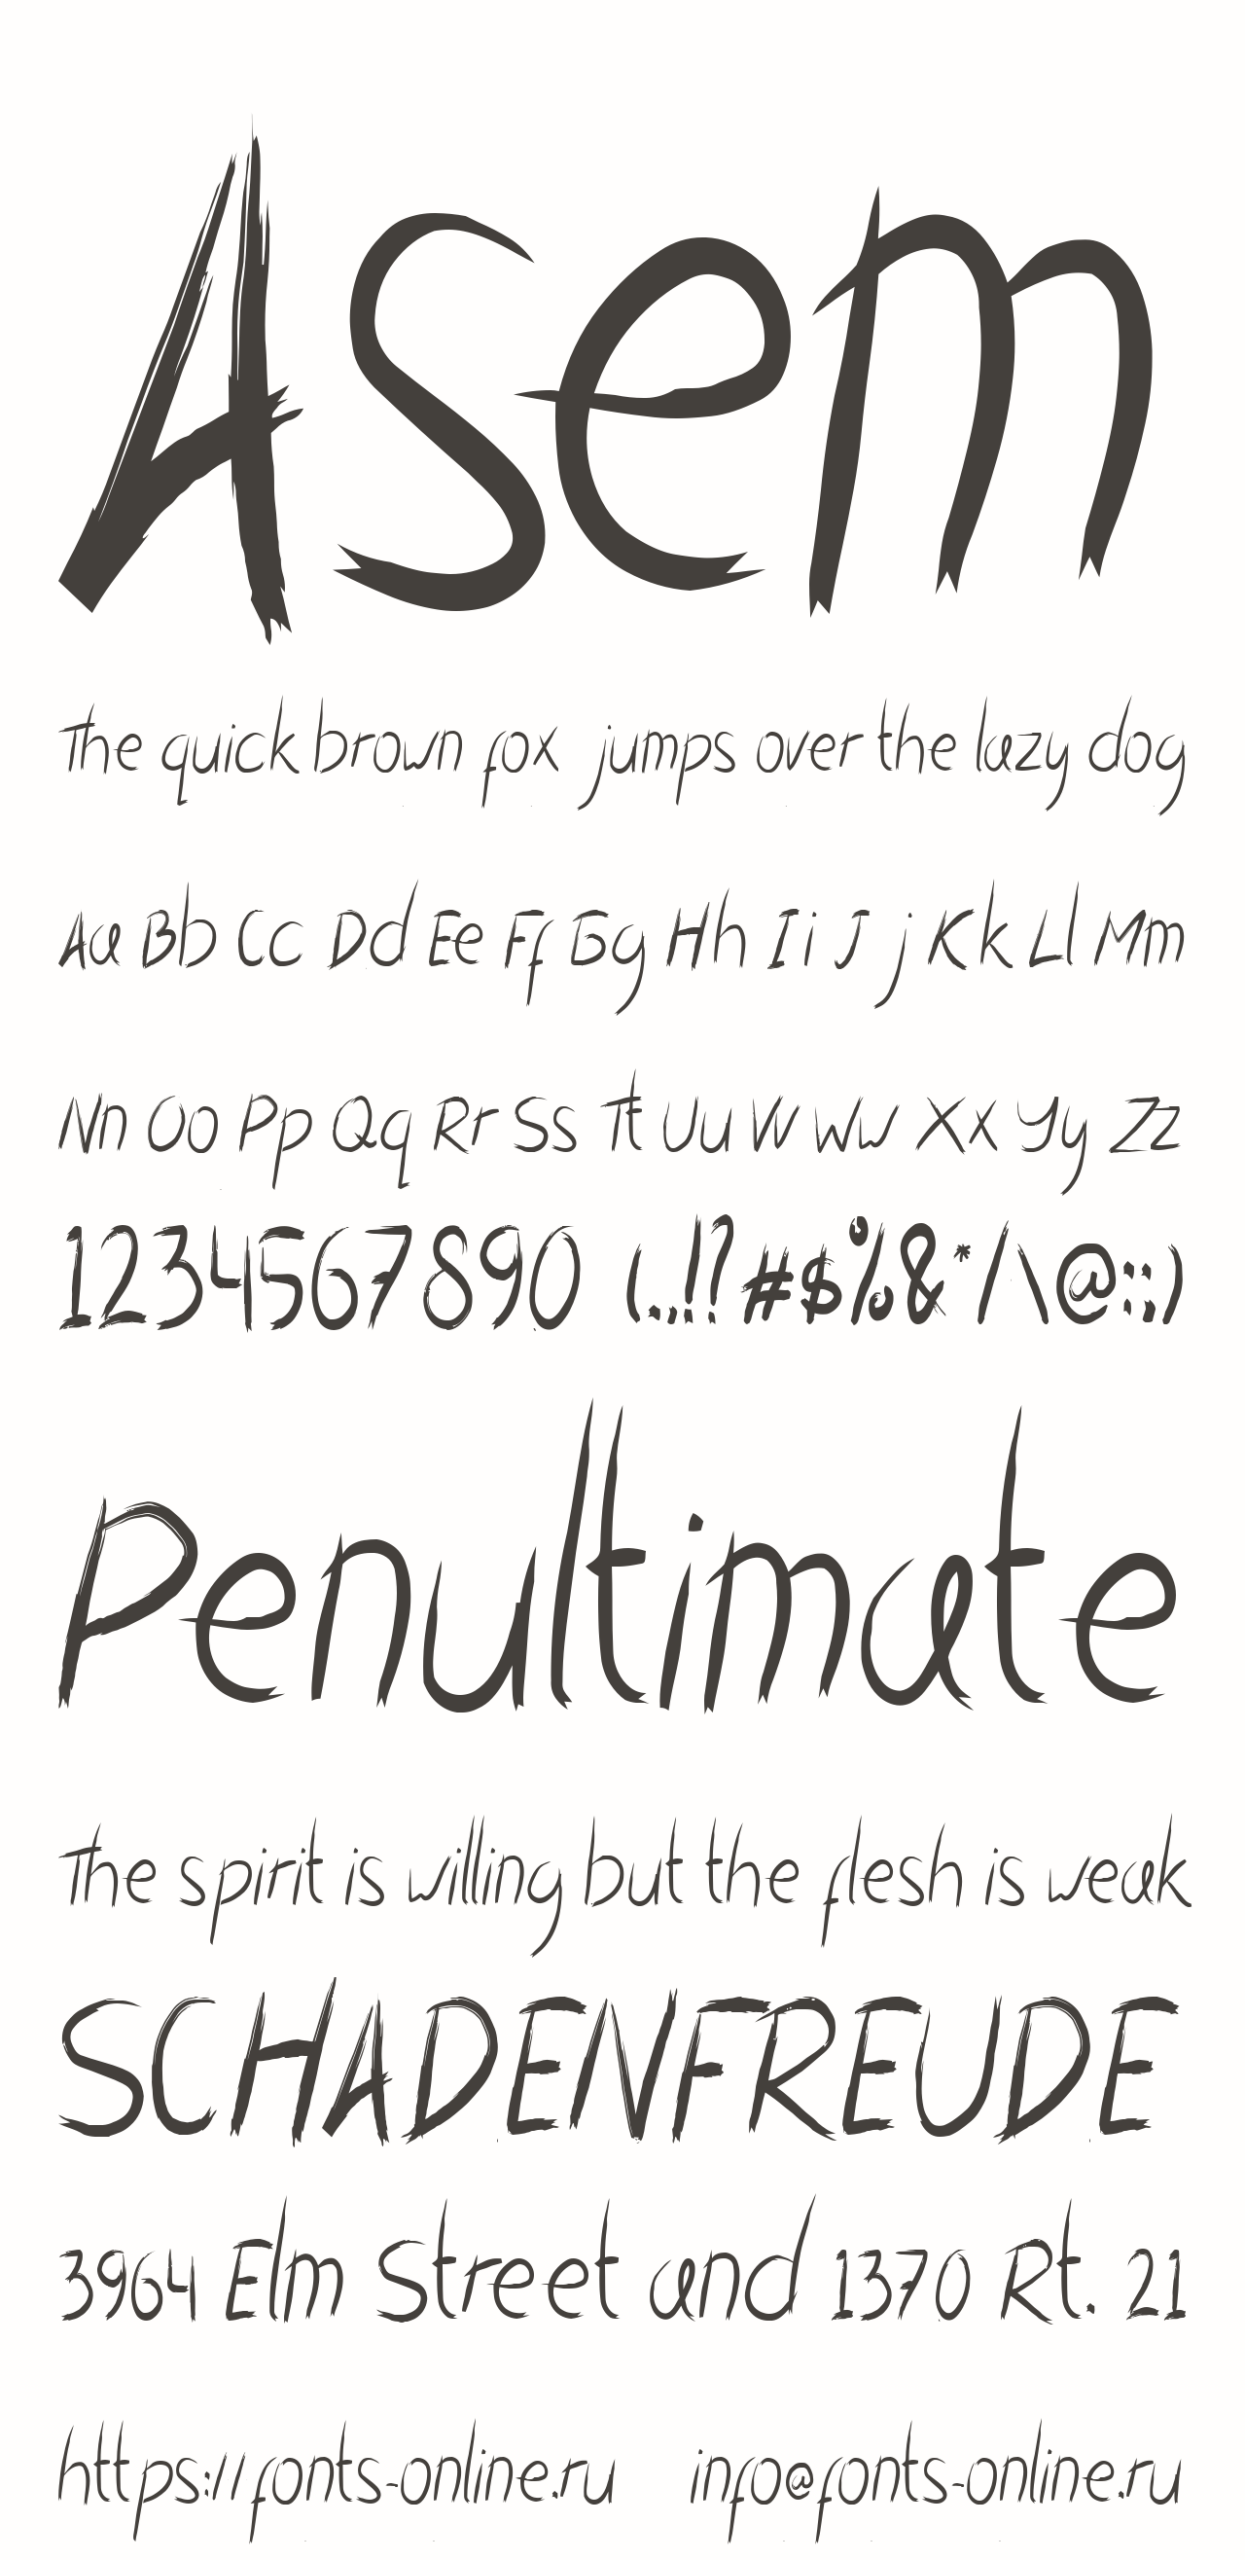 Asem
The quick brown fox jumps over the lazy dog
Aa Bb Cc Dd Ee Ff Gg Hh Ii Jj Kk Ll Mm
Nn Oo Pp Qq Rr Ss Tt Uu Vv Ww Xx Yy Zz
1234567890 (.,!? #$%&*/\@:;)
Penultimate
The spirit is willing but the flesh is weak
SCHADENFREUDE
3964 Elm Street and 1370 Rt. 21
https://fonts-online.ru info@fonts-online.ru